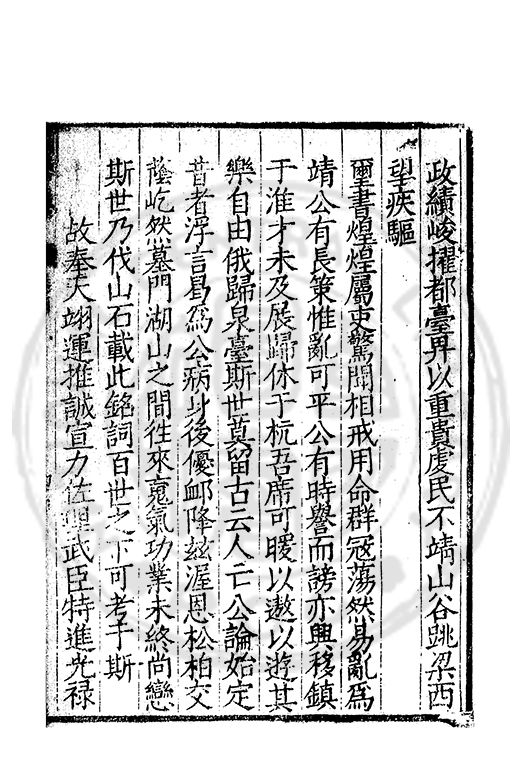 政績峻擢都臺畀以重貴虔民不靖山谷跳梁西
望疾驅
璽書煌煌屬吏驚聞相戒用命群冦蕩然易亂爲
靖公有長策惟亂可平公有時譽而謗亦興移鎮
于淮才未及展歸休于杭吾席可暖以遨以遊其
樂自由俄歸泉臺斯世莫留古云人亡公論始定
昔者浮言曷爲公病身後優䘏降兹渥恩松柏交
蔭屹然墓門湖山之間徃來䰟氣功業未終尚戀
斯世乃伐山石載此銘詞百世之下可考于斯
故奉天翊運推誠宣力佐理武臣特進光禄